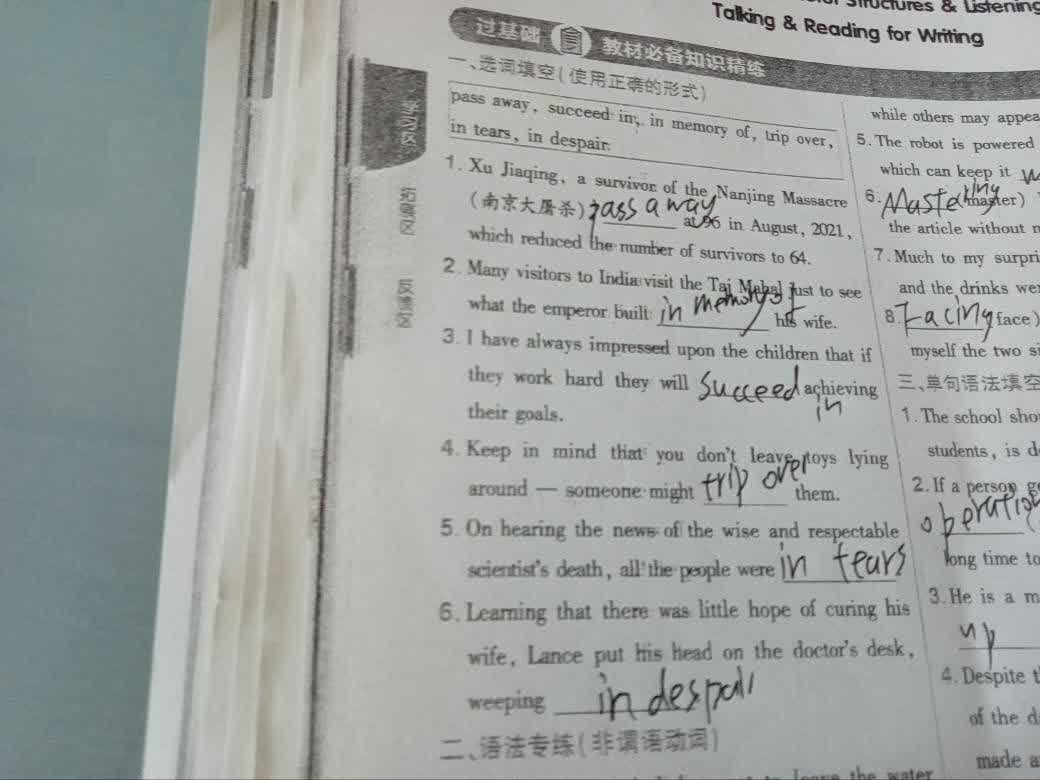 Structures & Listening
Talking & Reading for Writing
过基础 教材必备知识精练
一、选词填空(使用正确的形式)
pass away, succeed in, in memory of, trip over,
in tears, in despair
1. Xu Jiaqing, a survivor of the Nanjing Massacre
(南京大屠杀) pass away at 96 in August, 2021,
which reduced the number of survivors to 64.
2. Many visitors to India visit the Taj Mahal just to see
what the emperor built in memory of his wife.
3. I have always impressed upon the children that if
they work hard they will succeed in achieving
their goals.
4. Keep in mind that you don't leave toys lying
around — someone might trip over them.
5. On hearing the news of the wise and respectable
scientist's death, all the people were in tears
6. Learning that there was little hope of curing his
wife, Lance put his head on the doctor's desk,
weeping in despair
二、语法专练(非谓语动词)
leave the water
学习区
拓展区
反馈区
while others may appea
5. The robot is powered
which can keep it
6. Mastering (master)
the article without
7. Much to my surpri
and the drinks wer
8. Facing (face)
myself the two si
三、单句语法填空
1. The school sho
students, is d
2. If a person ge
operation
long time to
3. He is a m
up
4. Despite t
of the d
made a